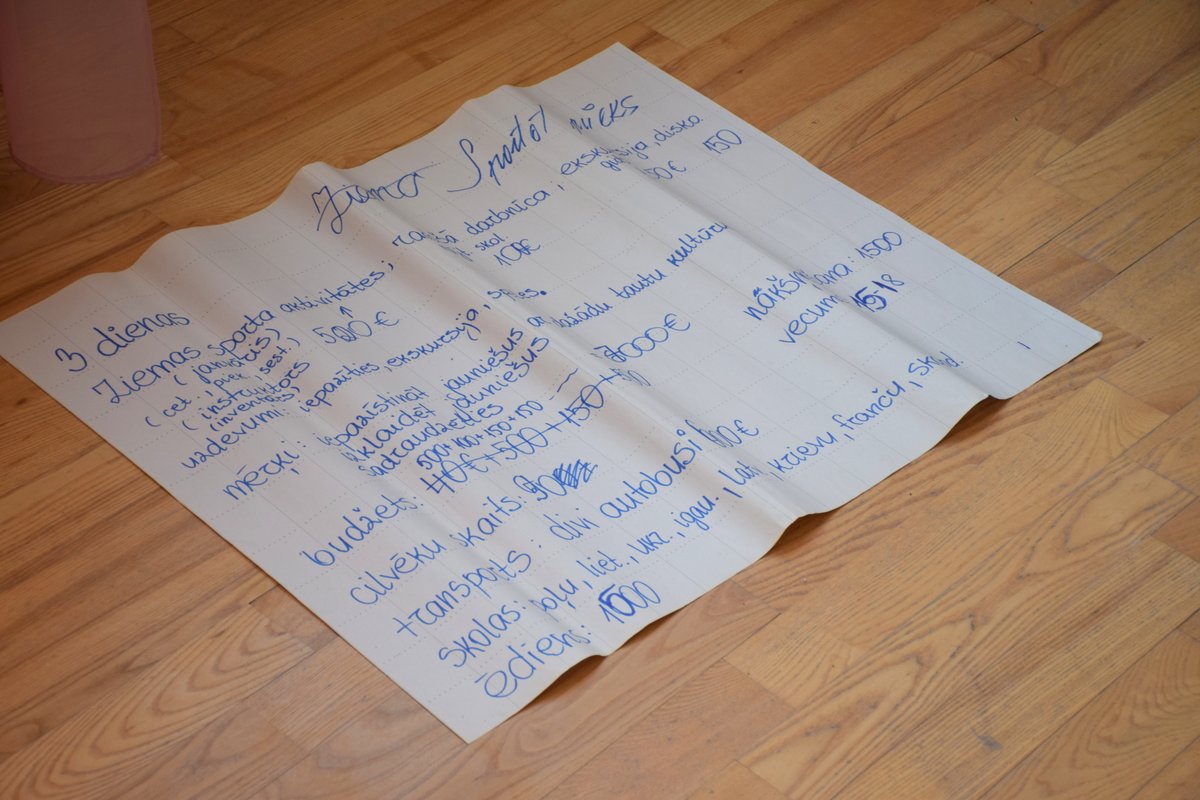 3 dienas
Ziemas sporta aktivitātes; radošā darbnīca, ekskursija, disko.
(janvāris) 500€ skol 100€ 50€ 150
(cet., piek., sest.)
(instruktors
(inventārs)
uzdevumi: iepazīties, ekskursija,
mērķi: iepazīstināt jauniešus ar dažādu tautu kultūru
izklaidēt jauniešus
sadraudzēties
500+100+150+150
budžets: 40€+500+150+ 7000€
nākšņošana: 1500
cilvēku skaits: 90
vecums: 15-18
transports: divi autobusi
skolas: poļu, liet., ukr., igau., krievu, franču,
ēdiens: 1500